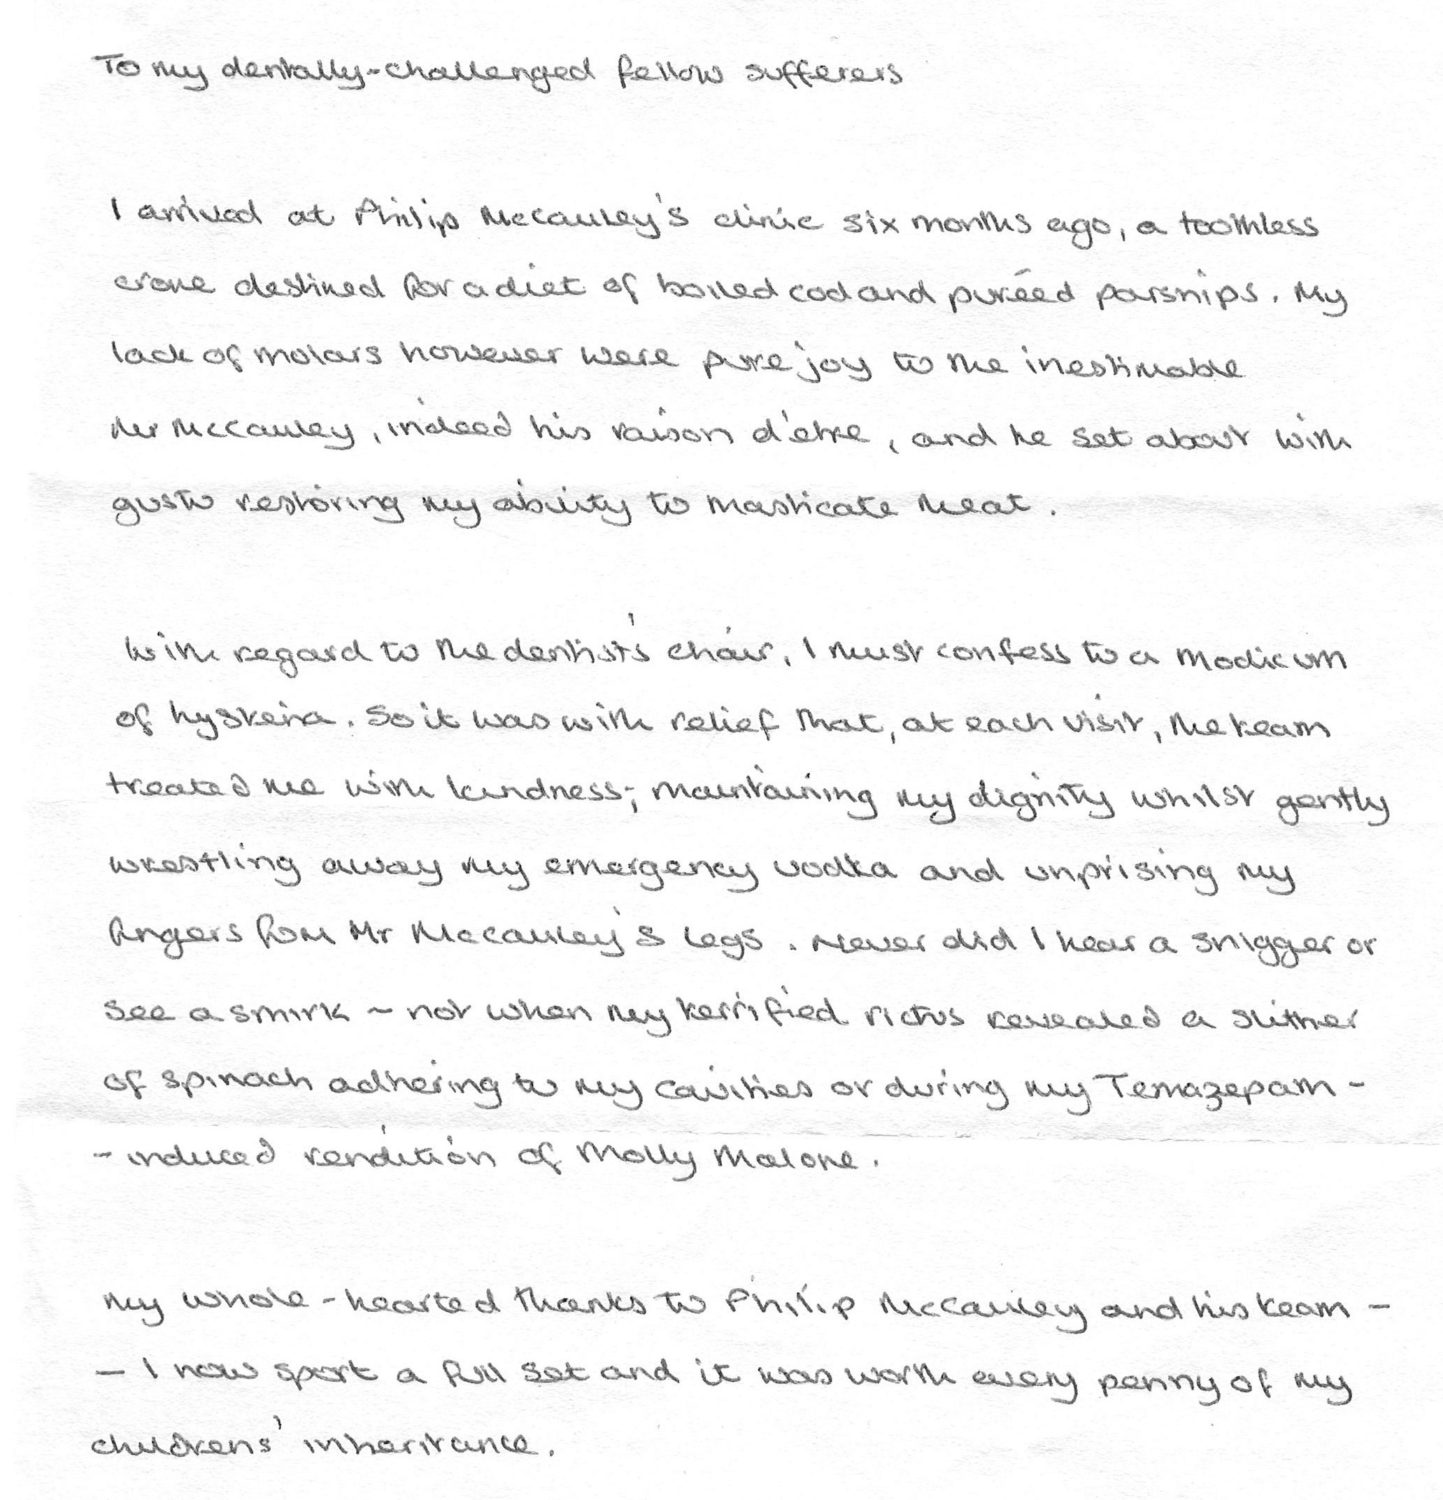 To my dentally-challenged fellow sufferers
I arrived at Philip McCauley's clinic six months ago, a toothless
crone destined for a diet of boiled cod and puréed parsnips. My
lack of molars however were pure joy to the inestimable
Mr McCauley, indeed his raison d'etre, and he set about with
gusto restoring my ability to masticate meat.
With regard to the dentists' chair, I must confess to a modicum
of hysteria. So it was with relief that, at each visit, the team
treated me with kindness; maintaining my dignity whilst gently
wrestling away my emergency vodka and unprising my
fingers from Mr McCauley's legs. Never did I hear a snigger or
see a smirk - not when my terrified rictus revealed a slither
of spinach adhering to my cavities or during my Temazepam -
- induced rendition of Molly Malone.
My whole-hearted thanks to Philip McCauley and his team -
- I now sport a full set and it was worth every penny of my
childrens' inheritance.